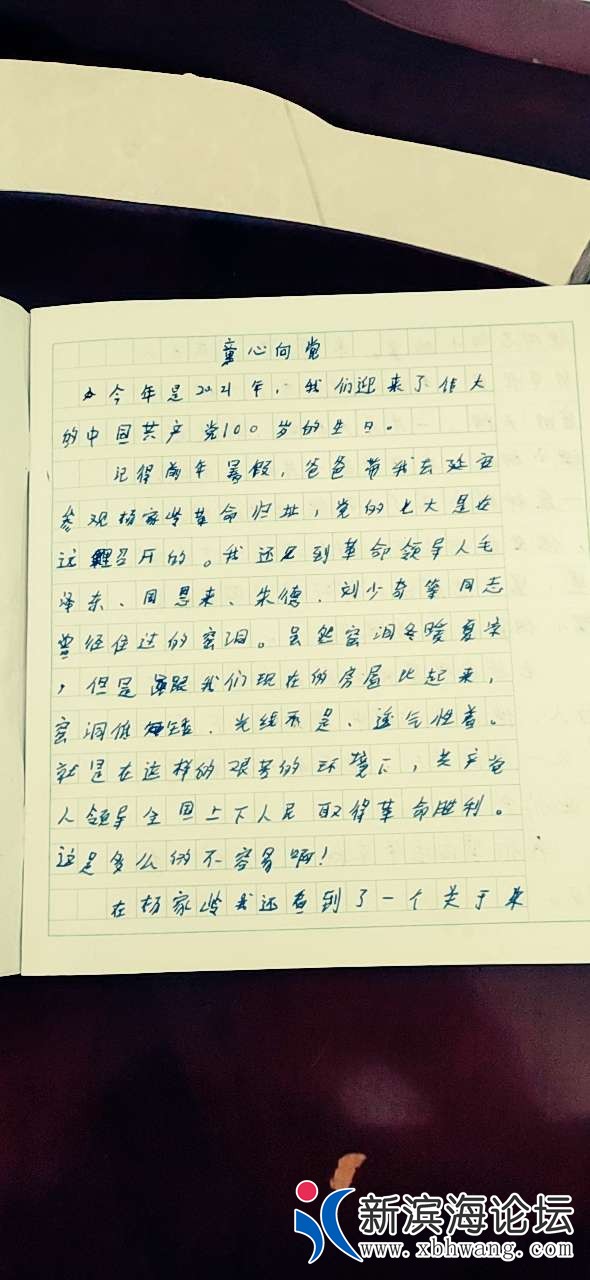 童心向党
今年是2021年,我们迎来了伟大
的中国共产党100岁的生日。
记得前年暑假,爸爸带我去延安
参观杨家岭革命旧址,党的七大是在
这里召开的。我还见到革命领导人毛
泽东、周恩来、朱德、刘少奇等同志
曾经住过的窑洞。虽然窑洞冬暖夏凉
,但是跟我们现在的房屋比起来,
窑洞低矮、光线不足、透气性差。
就是在这样的艰苦的环境下,共产党
人领导全国上下人民取得革命胜利。
这是多么的不容易啊!
在杨家岭我还看到了一个关于朱
新滨海论坛
www.xbhwang.com